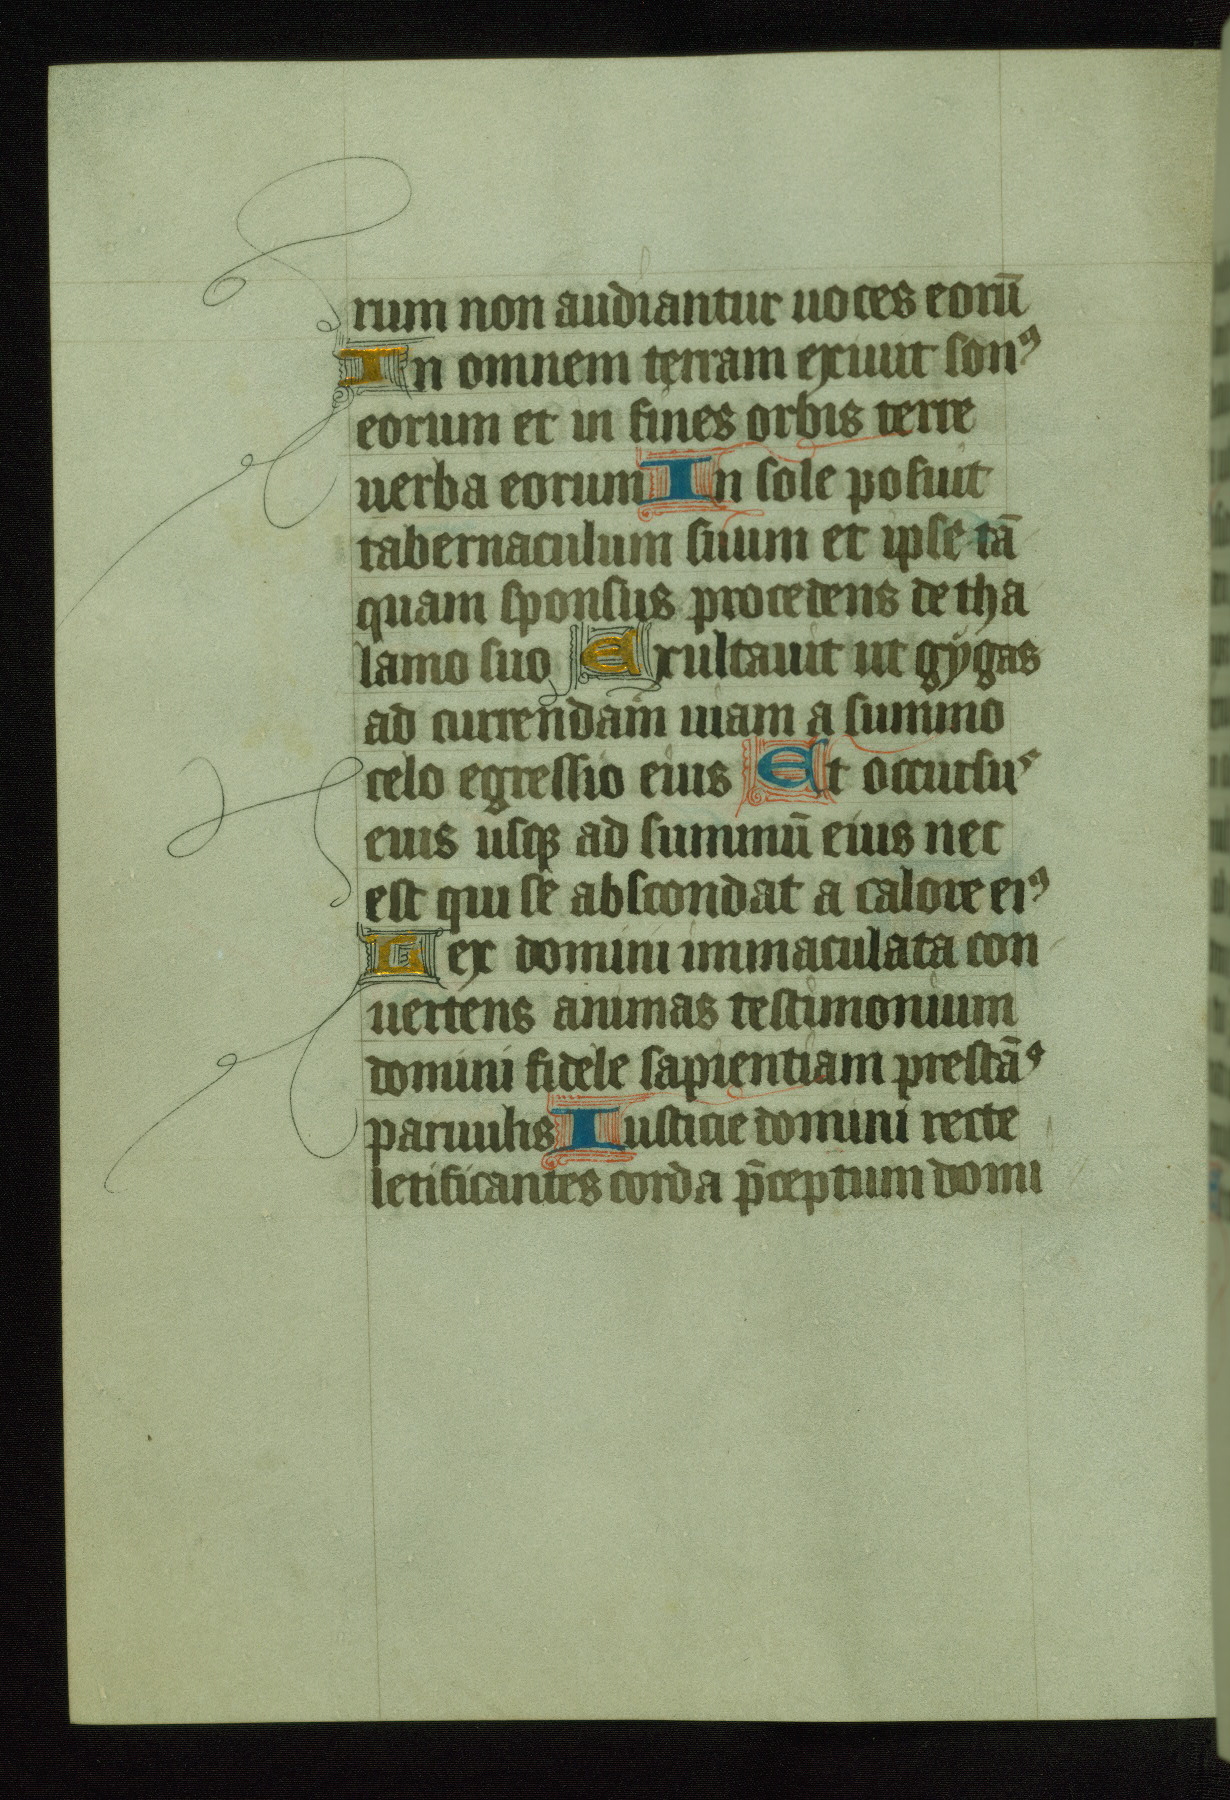 rum non audiantur uoces eorū
In omnem terram exiuit sonꝰ
eorum et in fines orbis terre
uerba eorum In sole posuit
tabernaculum suum et ipse tā
quam sponsus procedens de tha
lamo suo Exultauit ut gygas
ad currendam uiam a summo
celo egressio eius Et occursuˢ
eius usqꝫ ad summū eius nec
est qui se abscondat a calore eiꝰ
Lex domini immaculata con
uertens animas testimonium
domini fidele sapientiam prestāˢ
paruulis Iusticie domini recte
letificantes corda p̄ceptum domi